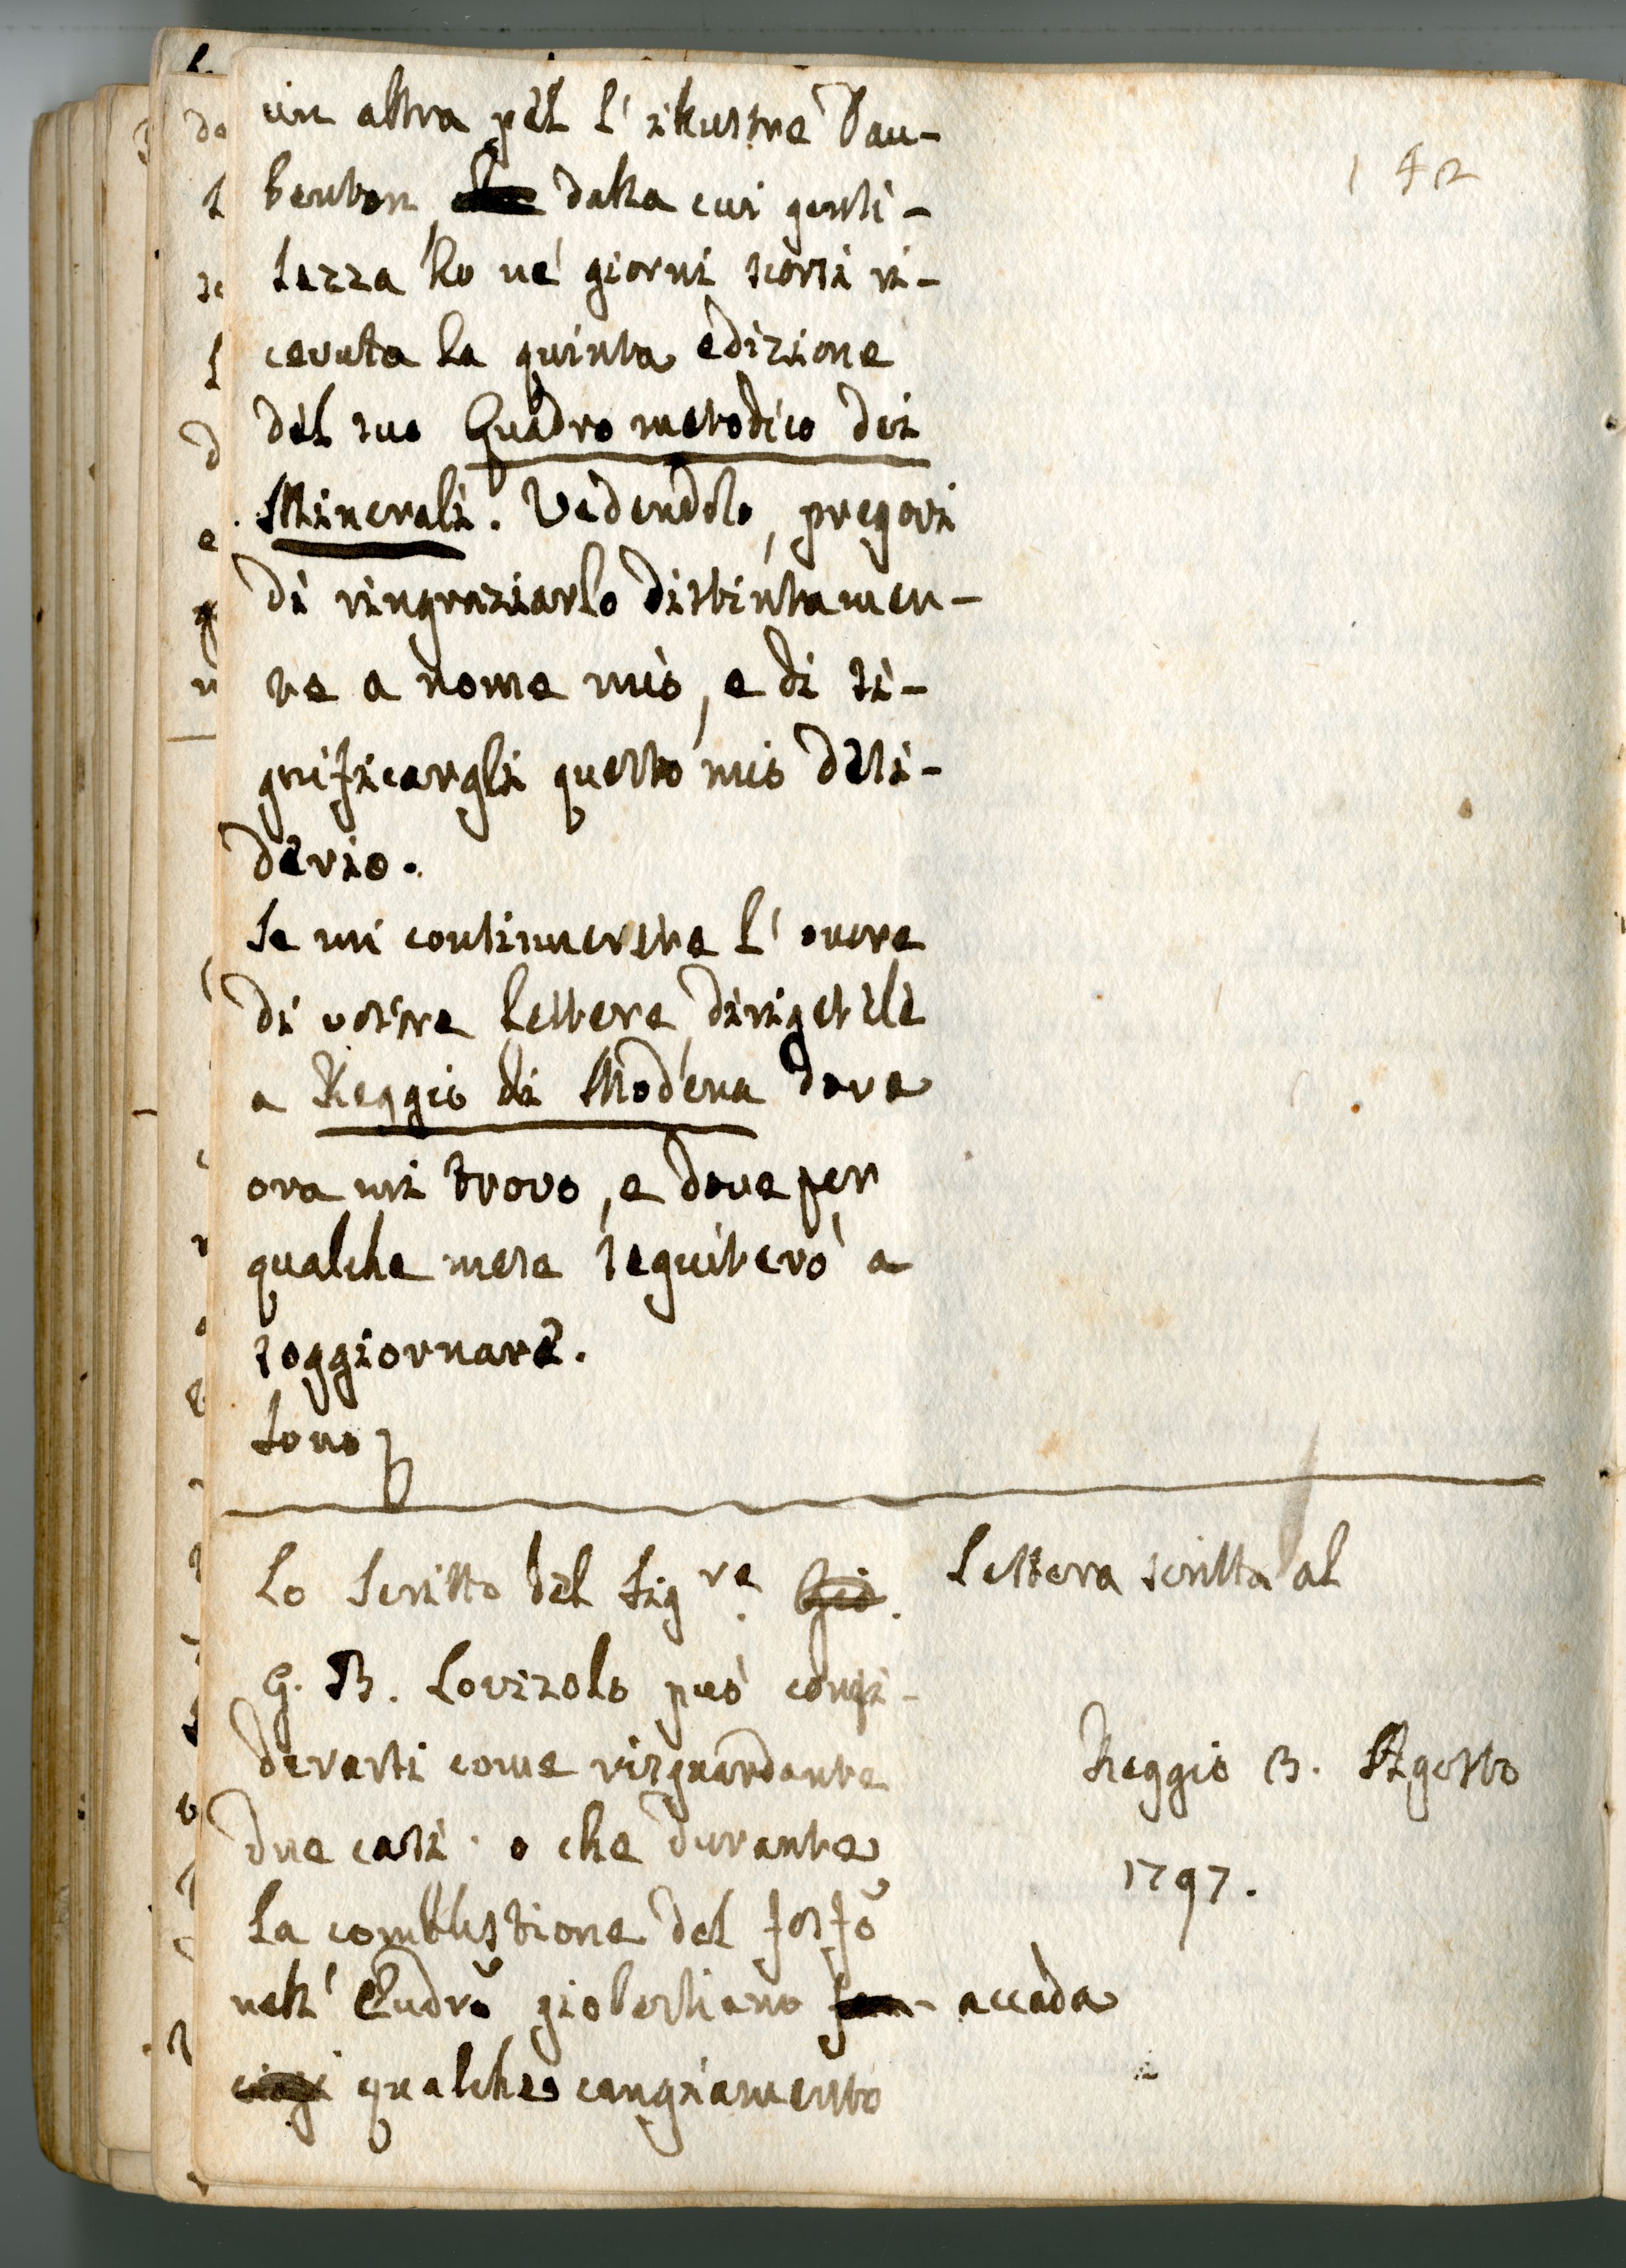 142
un altra pel l'illustre Dau-
benton dalla cui genti-
lezza ho ne' giorni scorsi ri-
cevuta la quinta edizione
del suo Quadro metodico dei
Minerali. Vedendolo, pregovi
di ringraziarlo distintamen-
te a nome mio, e di si-
gnificargli questo mio desi-
derio.
Se mi continuerete l'onore
di vostre lettere, dirigetele
a Reggio di Modena dove
ora mi trovo, e dove per
qualche mese seguiterò a
soggiornare.
Sono
Lettera scritta al
Reggio 13. Agosto
1797.
Lo Scritto del Sig.re Gio.
G. B. Lovizolo può consi-
derarsi come risguardante
due casi. o che durante
la combustione del fosfo
nell' Eudro giobertiano accada
qualche cangiamento